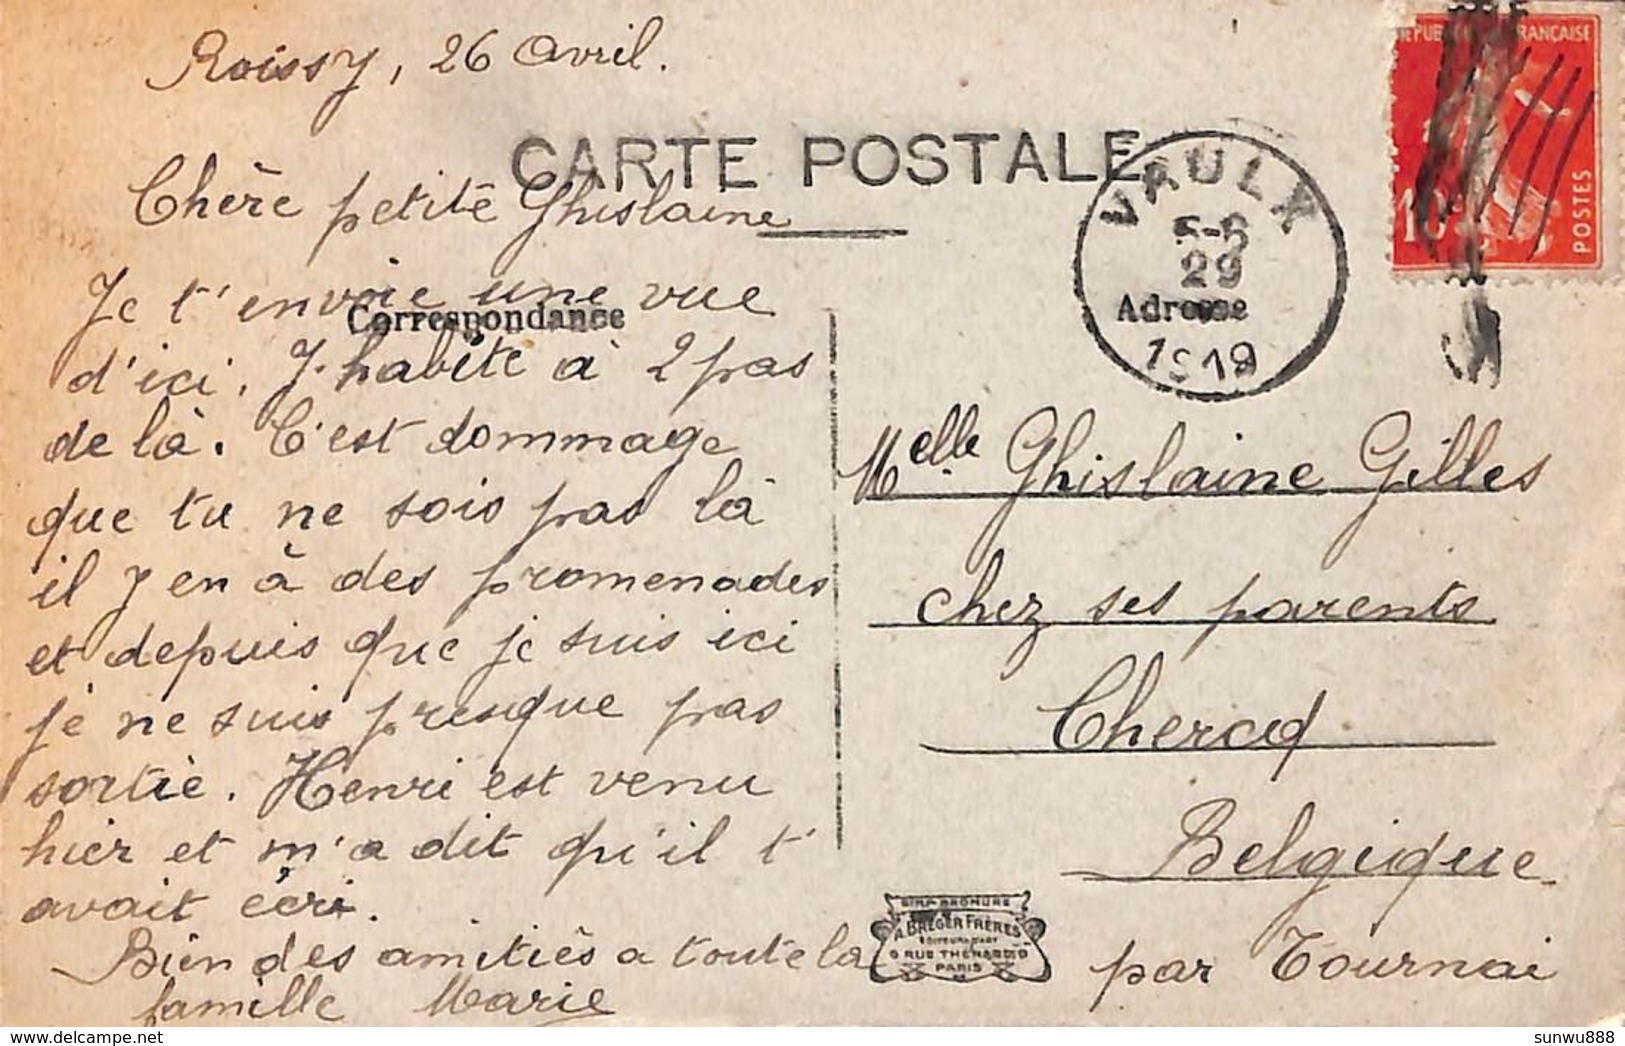 Roissy, 26 Avril.
CARTE POSTALE
Chère petite Ghislaine
Je t'envoie une vue
Correspondance
d'ici. J.habite à 2 pas
de là. C'est dommage
que tu ne sois pas là
il y en à des promenades
et depuis que je suis ici
je ne suis presque pas
sortie. Henri est venu
hier et m'a dit qu'il t'
avait écri.
Bien des amitiés a toute la
famille Marie
RÉPUBLIQUE FRANÇAISE
10c
POSTES
VAULX
5-6
29
1919
Adresse
Melle Ghislaine Gilles
chez ses parents
Chercq
Belgique
par Tournai
SIMP-BROMURE
A. BREGER FRÈRES
EDITEURS D'ART
9 RUE THENARD 9
PARIS
sunwu888